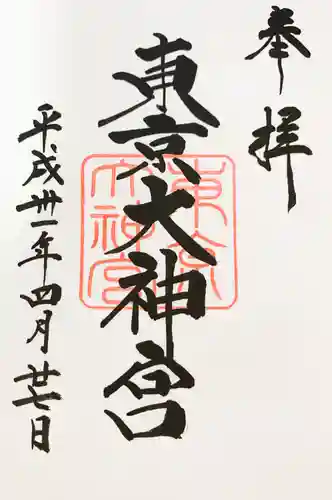 奉拝
東京大神宮
平成卅一年四月廿七日
東京
大神宮